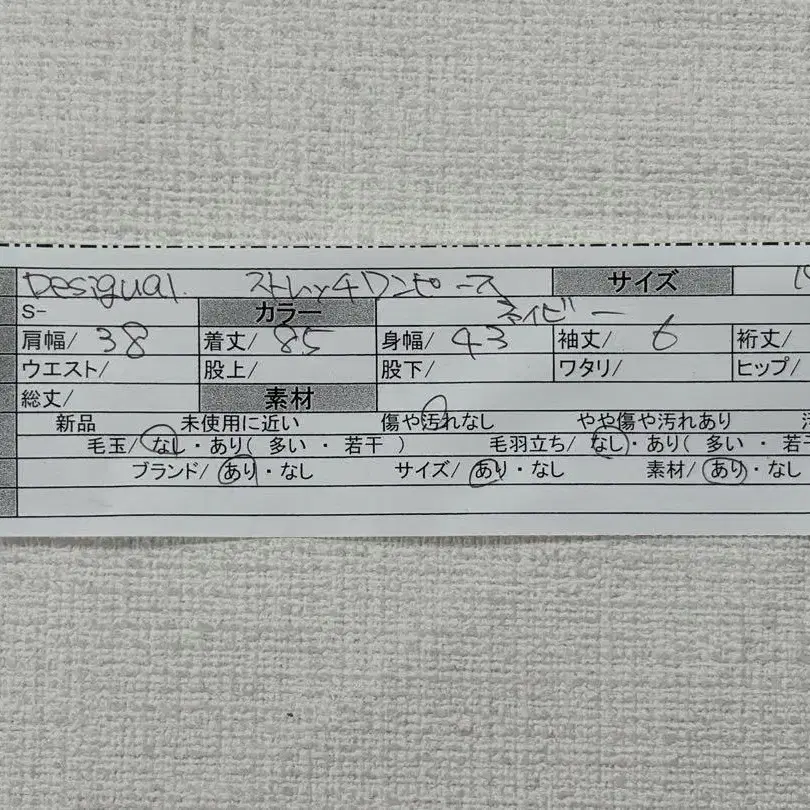 Desigual. ストレッチワンピース サイズ
S- カラー ネイビー
肩幅/ 38 着丈/ 85 身幅/ 43 袖丈/ 6 裄丈/
ウエスト/ 股上/ 股下/ ワタリ/ ヒップ/
総丈/ 素材
新品 未使用に近い 傷や汚れなし やや傷や汚れあり
毛玉/ なし・あり( 多い ・ 若干 ) 毛羽立ち/ なし・あり( 多い ・ 若干
ブランド/ あり・なし サイズ/ あり・なし 素材/ あり・なし